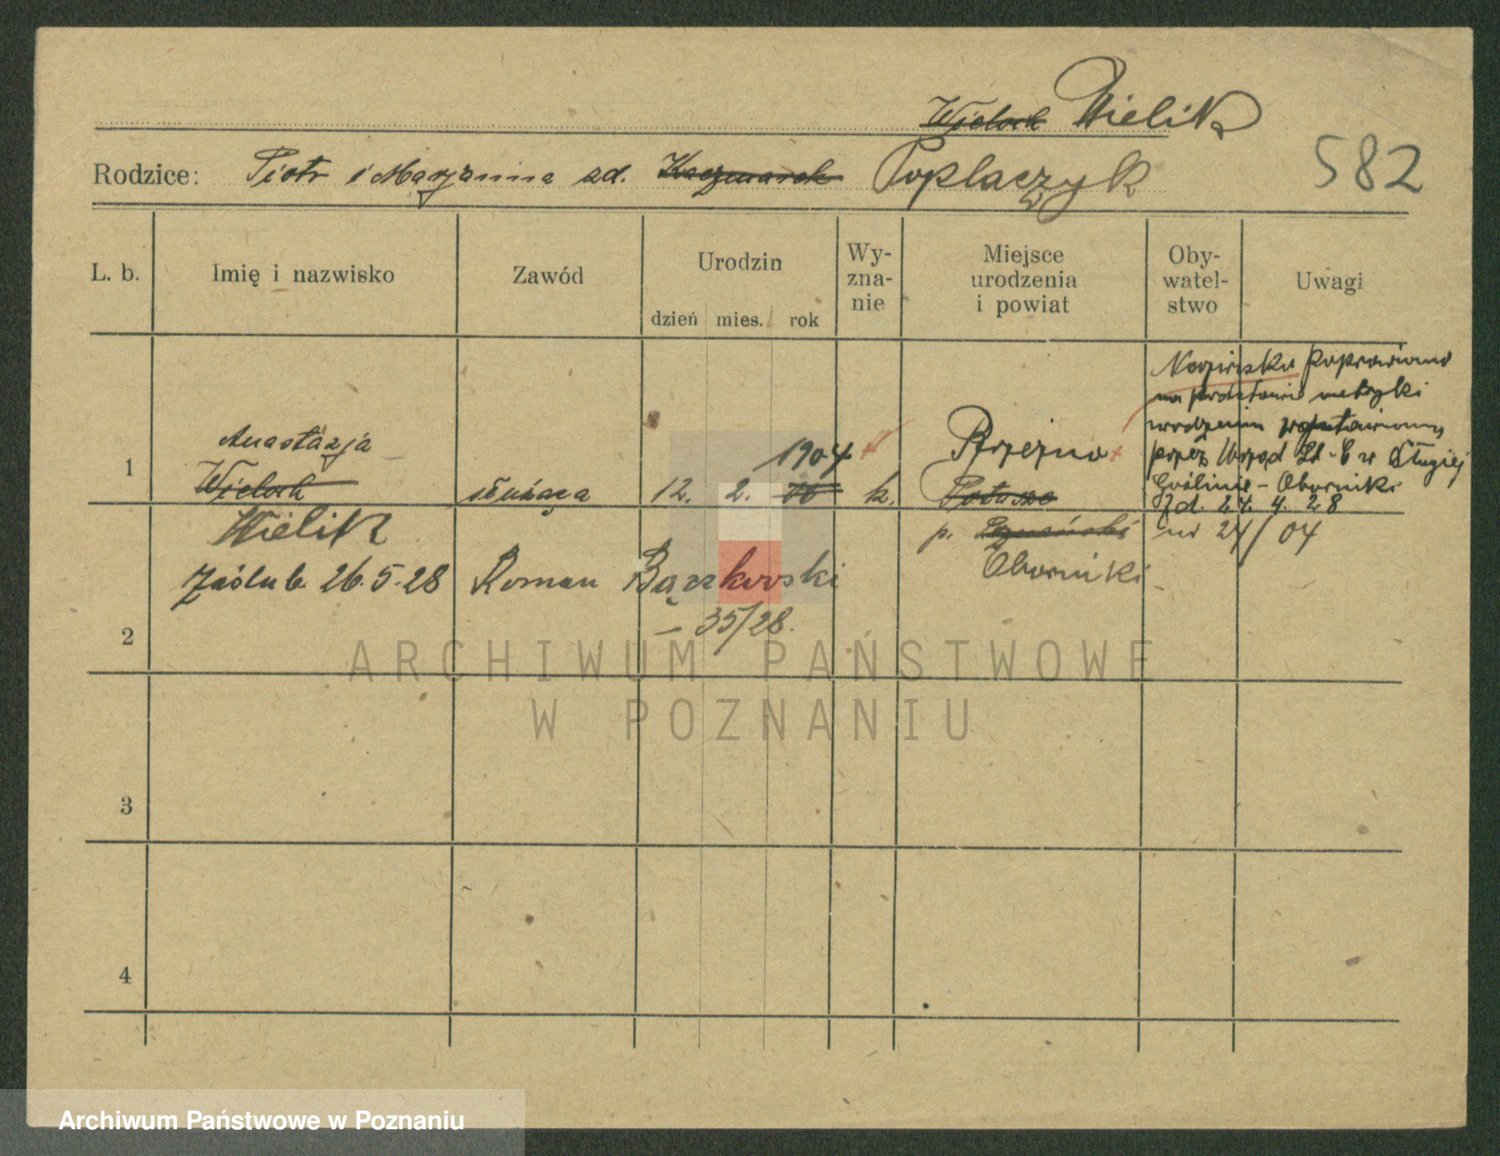 Wieloch Wielik
Rodzice: Piotr i Maryanna zd. Kaczmarek Poplaczyk
582
L. b. Imię i nazwisko Zawód Urodzin dzień mies. rok Wy-zna-nie Miejsce urodzenia i powiat Oby-watel-stwo Uwagi
Nazwisko poprawiono
na podstawie metryki
urodzenia wystawionej
przez Urząd St. C w Długiej
Goślinie - Oborniki
zd. 24. 4. 28
nr 24/04
1904
Anastazja
Brzezno
1 Wieloch służąca 12. 2. k.
Wielik
p.
Oborniki
Zaślub. 26.5.28 Roman Bączkowski
- 35/28.
2
3
4
ARCHIWUM PAŃSTWOWE
W POZNANIU
Archiwum Państwowe w Poznaniu